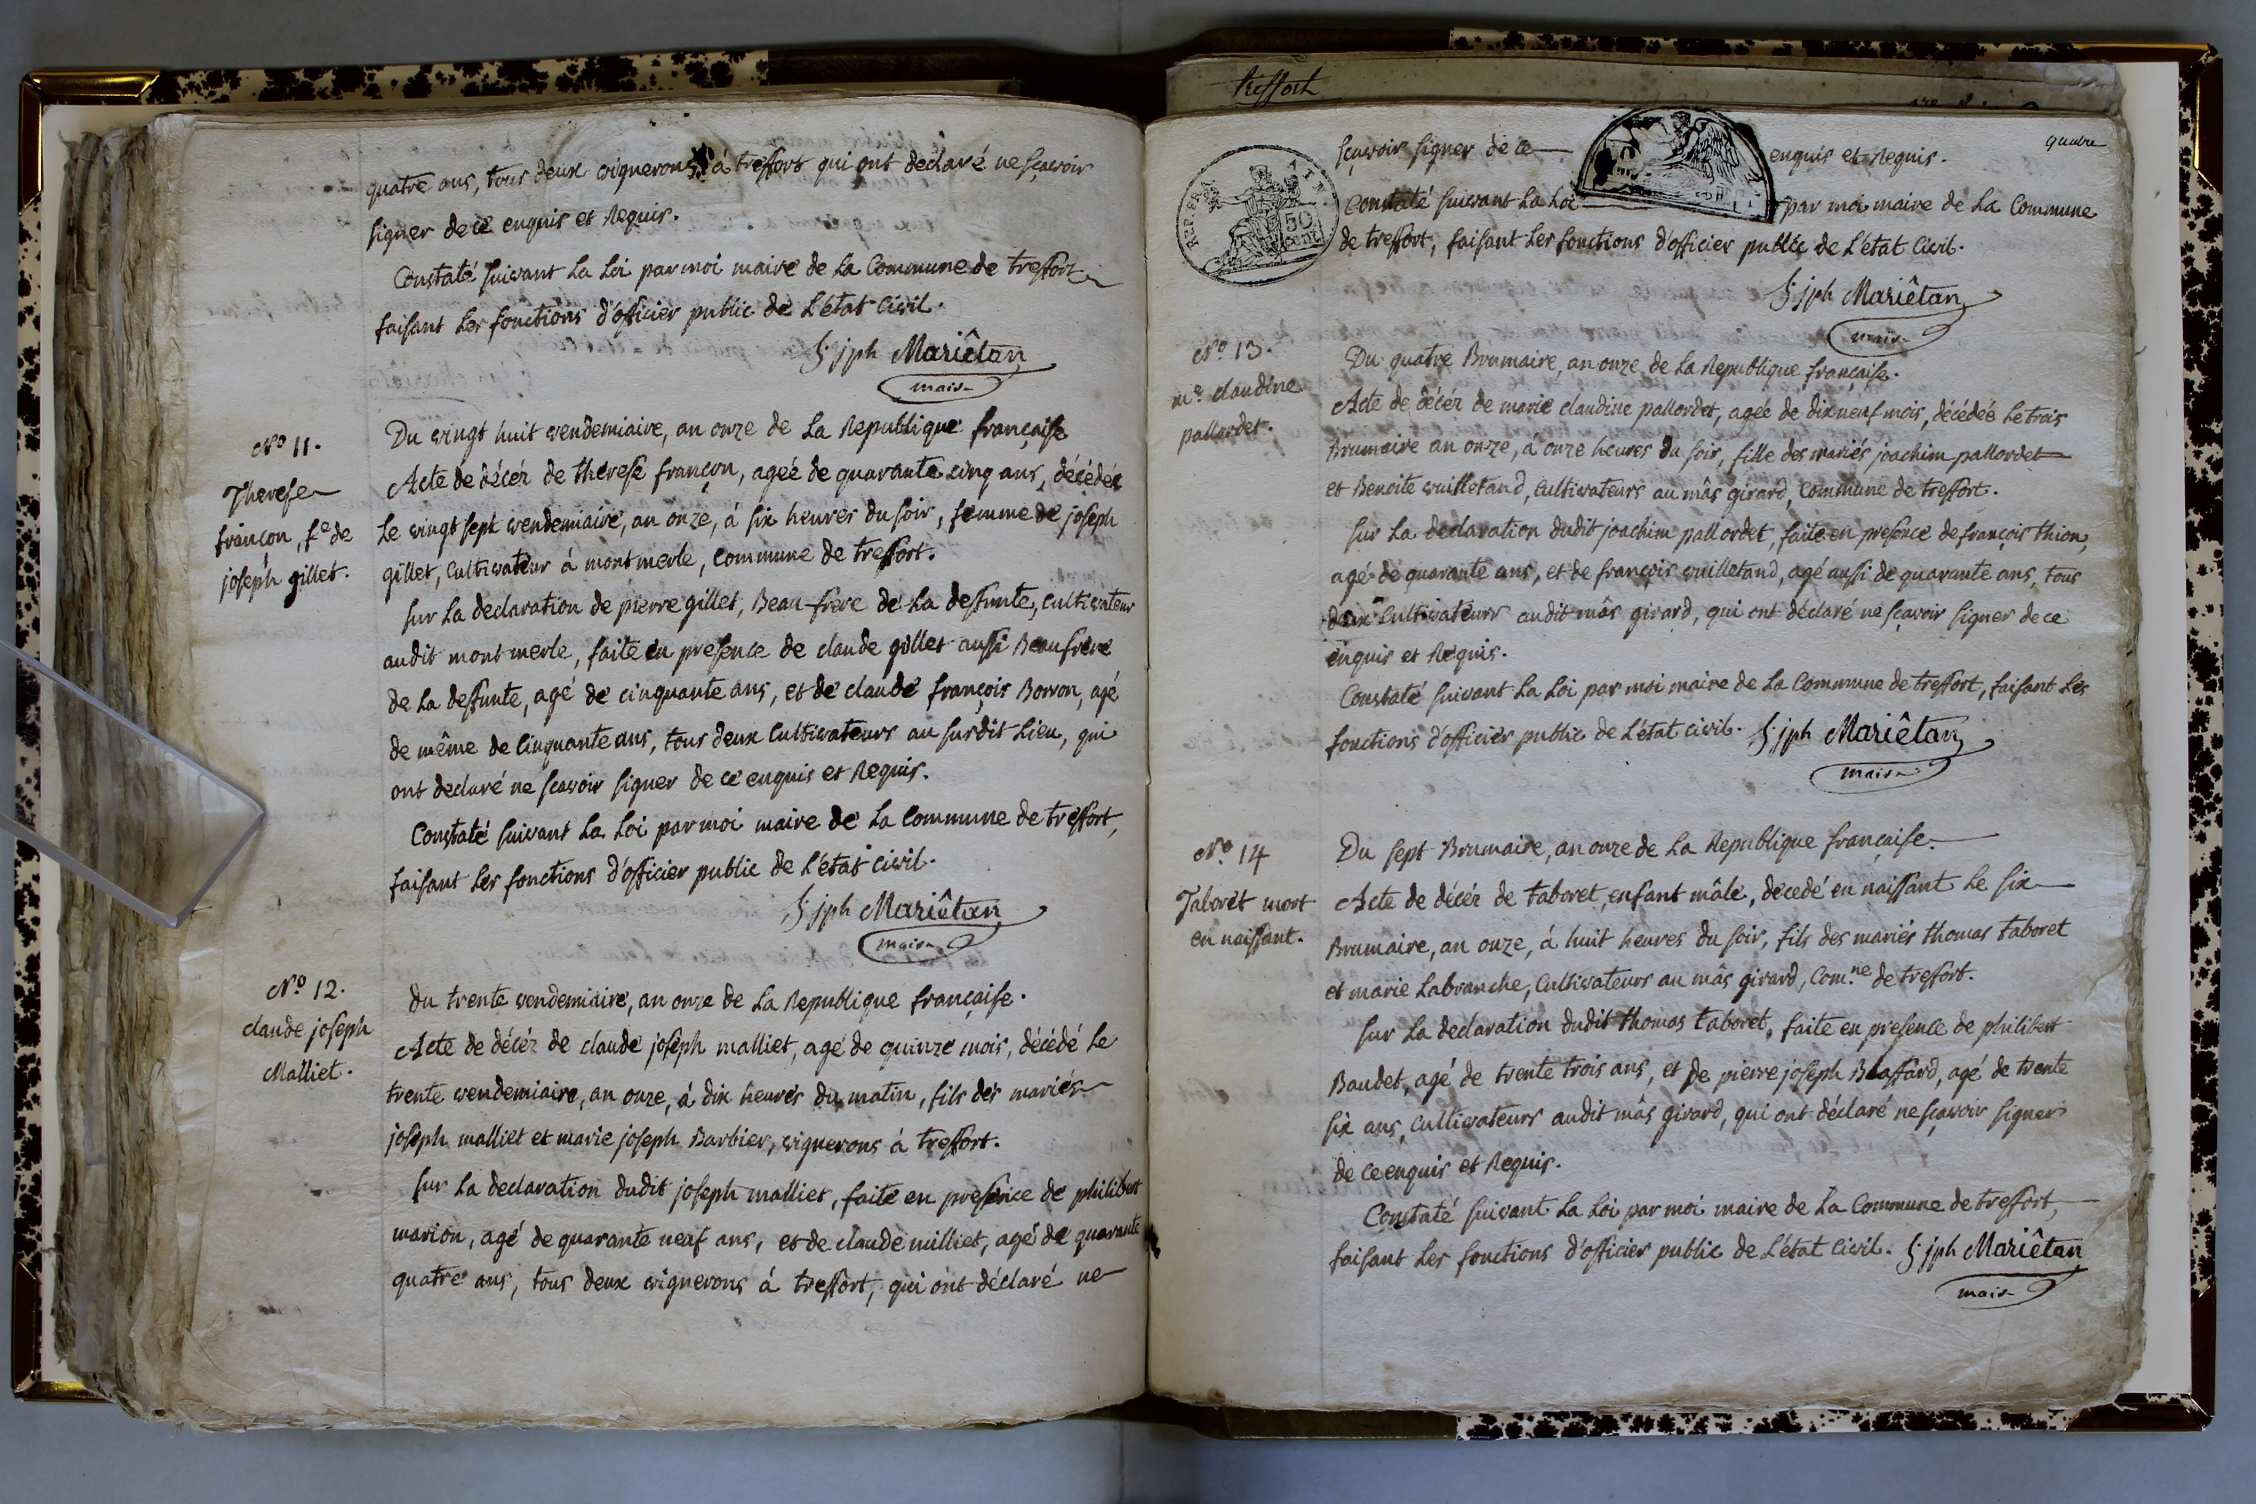 quatre ans, tous deux vignerons à treffort qui ont declaré ne sçavoir
signer de ce enquis et Requis.
Constaté suivant La Loi par moi maire de La Commune de treffort
faisant Les fonctions d'officier public de L'état Civil.
jph Mariêtan
maire
N.o 11.
Therese
françon, f.e de
joseph gillet.
Du vingt huit vendemiaire, an onze de La Republique française
Acte de décéz de therese françon, agée de quarante cinq ans, décédée
Le vingt sept vendemiaire, an onze, à six heures du soir, femme de joseph
gillet, Cultivateur à montmerle, Commune de treffort.
sur La declaration de pierre gillet, Beau-frere de La deffunte, Cultivateur
audit montmerle, faite en presence de claude gillet aussi Beaufrere
de La deffunte, agé de cinquante ans, et de claude françois Borron, agé
de même de Cinquante ans, tous deux Cultivateurs au susdit Lieu, qui
ont declaré ne scavoir signer de ce enquis et Requis.
Constaté suivant La Loi par moi maire de La Commune de treffort,
faisant Les fonctions d'officier public de L'état civil.
jph Mariêtan
maire
N.o 12.
claude joseph
Malliet.
Du trente vendemiaire, an onze de La Republique française.
Acte de décéz de claude joseph malliet, agé de quinze mois, décédé Le
trente vendemiaire, an onze, à dix heures du matin, fils des mariés
joseph malliet et marie joseph Barbier, vignerons à treffort.
sur La declaration dudit joseph malliet, faite en presence de philibert
marion, agé de quarante neuf ans, et de claude milliet, agé de quarante
quatre ans, tous deux vignerons à treffort, qui ont déclaré ne
treffort
quatre
REP. FRA
50
cent.
sçavoir signer de ce enquis et Requis.
Constaté suivant La Loi par moi maire de La Commune
de treffort, faisant Les fonctions d'officier public de L'état Civil.
jph Mariêtan
maire
N.o 13.
m.e claudine
pallordet.
Du quatre Brumaire, an onze de La Republique française.
Acte de décéz de marie claudine pallordet, agée de dix neuf mois, décédée Le trois
Brumaire an onze, à onze heures du soir, fille des mariés joachim pallordet
et Benoite vuilletand, Cultivateurs au mâs girard, Commune de treffort.
sur La declaration dudit joachim pallordet, faite en presence de françois thion,
agé de quarante ans, et de françois vuilletand, agé aussi de quarante ans, tous
deux Cultivateurs audit mâs girard, qui ont déclaré ne sçavoir signer de ce
enquis et Requis.
Constaté suivant La Loi par moi maire de La Commune de treffort, faisant Les
fonctions d'officier public de L'état civil. jph Mariêtan
maire
N.o 14
Taboret mort
en naissant.
Du sept Brumaire, an onze de La Republique française.
Acte de décéz de taboret, enfant mâle, décedé en naissant Le six
Brumaire, an onze, à huit heures du soir, fils des mariés thomas taboret
et marie Labranche, Cultivateurs au mâs girard, Com.ne de treffort.
sur La declaration dudit thomas taboret, faite en presence de philibert
Baudet, agé de trente trois ans, et de pierre joseph Blaffard, agé de trente
six ans, Cultivateurs audit mâs girard, qui ont déclaré ne sçavoir signer
de ce enquis et Requis.
Constaté suivant La Loi par moi maire de La Commune de treffort,
faisant Les fonctions d'officier public de L'état Civil. jph Mariêtan
maire